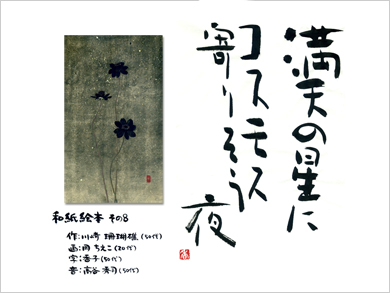 満天の星に
コスモス
寄りそう
夜
和紙絵本 その8
作:川崎 珊瑚礁(50代)
画:岡 ちえこ(20代)
字:香子(50代)
音:高谷 秀司(50代)